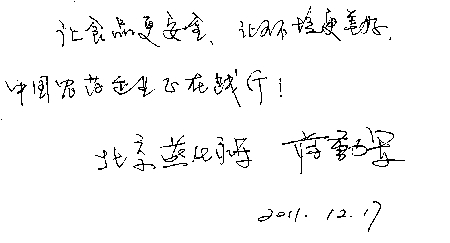 让食品更安全、让环境更美好，
中国农药企业正在践行！
北京燕化永乐 蒋勤军
2011.12.17